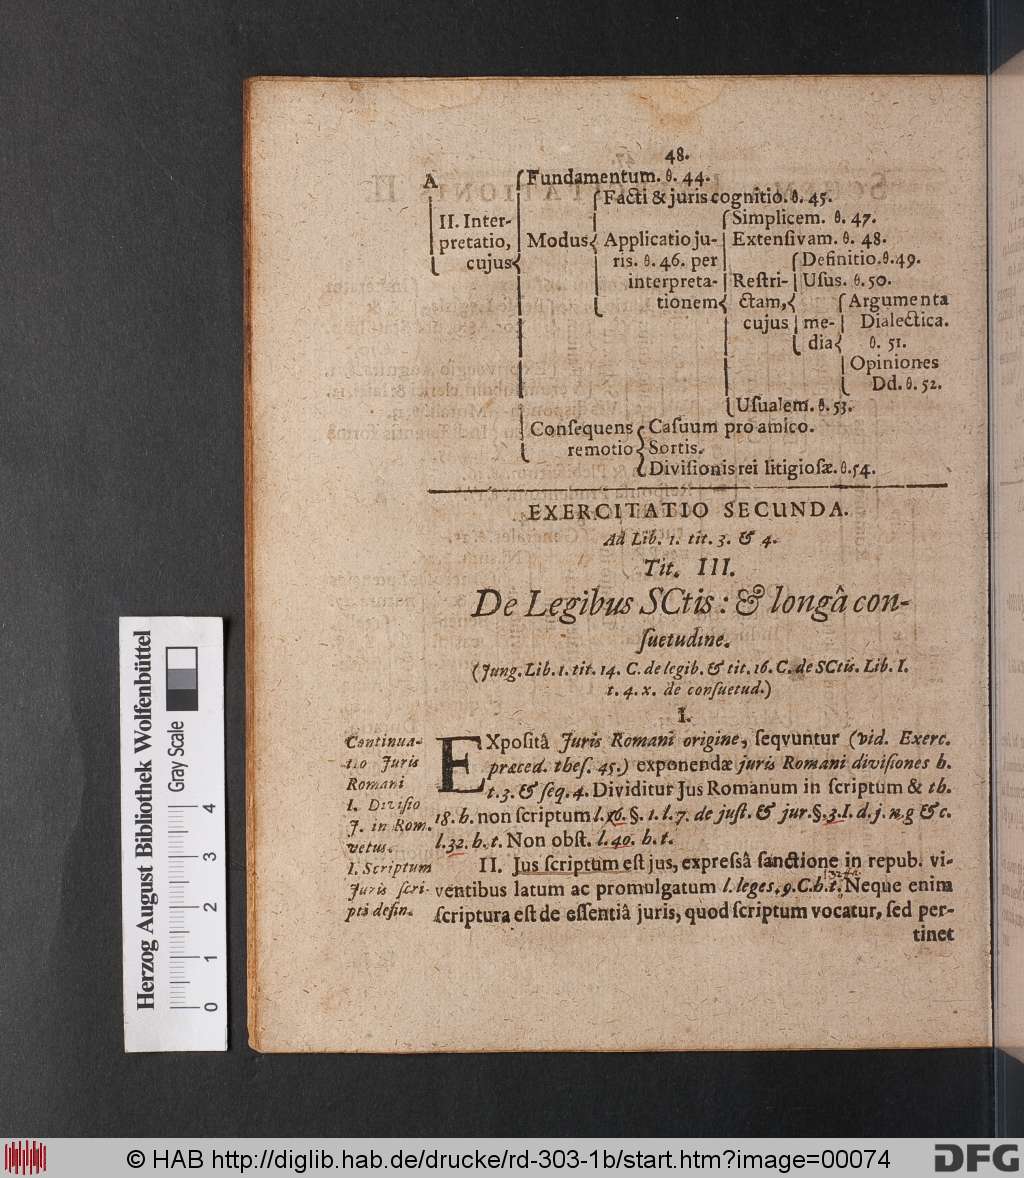 48.
A
Fundamentum. θ. 44.
Facti & juris cognitio. θ. 45.
II. Inter-
pretatio,
cujus
Modus
Applicatio ju-
ris. θ. 46. per
interpreta-
tionem
Simplicem. θ. 47.
Extensivam. θ. 48.
Restri-
ctam,
cujus
Definitio. θ. 49.
Usus. θ. 50.
me-
dia
Argumenta
Dialectica.
θ. 51.
Opiniones
Dd. θ. 52.
Usualem. θ. 53.
Consequens
remotio
Casuum pro amico.
Sortis.
Divisionis rei litigiosæ. θ. 54.
EXERCITATIO SECUNDA.
Ad Lib. 1. tit. 3. & 4.
Tit. III.
De Legibus SCtis: & longâ con-
suetudine.
(Jung. Lib. 1. tit. 14. C. de legib. & tit. 16. C. de SCtis. Lib. I.
t. 4. x. de consuetud.)
I.
Continua-
tio Juris
Romani
I. Divisio
J. in Rom.
vetus.
I. Scriptum
Juris scri-
pti defin.
EXpositâ Juris Romani origine, seqvuntur (vid. Exerc.
præced. thes. 45.) exponendæ juris Romani divisiones h.
t. 3. & seq. 4. Dividitur Jus Romanum in scriptum & th.
18. h. non scriptum l. §. 1. l. 7. de just. & jur. §. 3. I. d. j. n. g & c.
l. 32. h. t. Non obst. l. 40. h. t.
II. Jus scriptum est jus, expressâ sanctione in repub. vi-
ventibus latum ac promulgatum l. leges. 9. C. h. t. Neque enim
scriptura est de essentiâ juris, quod scriptum vocatur, sed per-
tinet
Herzog August Bibliothek Wolfenbüttel
Gray Scale
0 1 2 3 4
© HAB http://diglib.hab.de/drucke/rd-303-1b/start.htm?image=00074
DFG